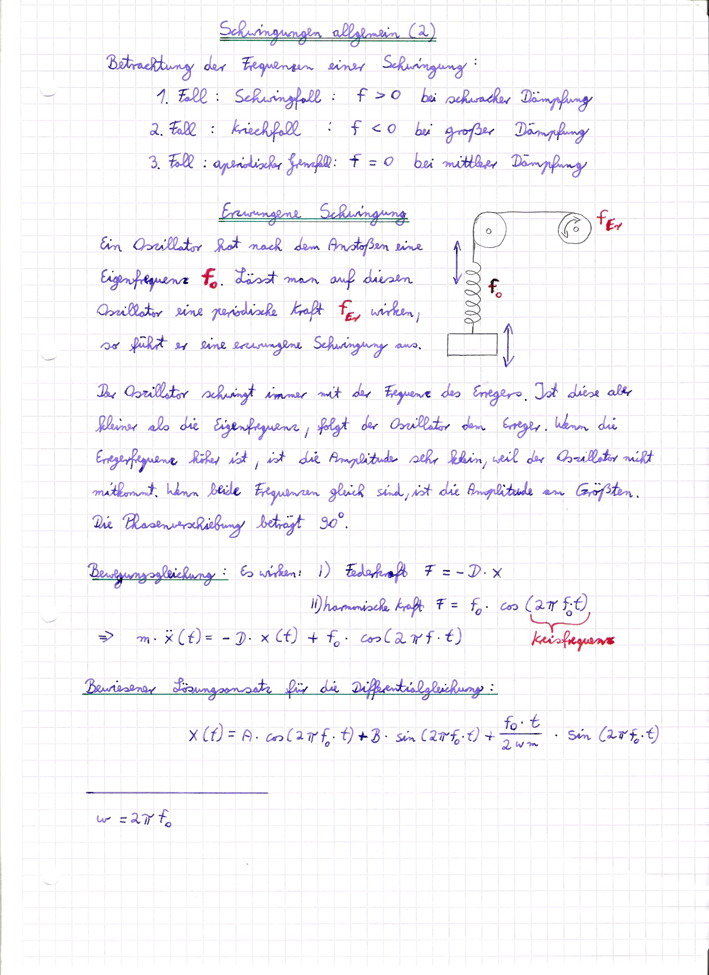 Schwingungen allgemein (2)
Betrachtung der Frequenzen einer Schwingung:
1. Fall: Schwingfall: f > 0 bei schwacher Dämpfung
2. Fall: Kriechfall : f < 0 bei großer Dämpfung
3. Fall: aperiodischer Grenzfall: f = 0 bei mittlerer Dämpfung
Erzwungene Schwingung
Ein Oszillator hat nach dem Anstoßen eine
Eigenfrequenz f₀. Lässt man auf diesen
Oszillator eine periodische Kraft f_Er wirken,
so führt er eine erzwungene Schwingung aus.
f_Er
f₀
Der Oszillator schwingt immer mit der Frequenz des Erregers. Ist diese aber
kleiner als die Eigenfrequenz, folgt der Oszillator dem Erreger. Wenn die
Erregerfrequenz höher ist, ist die Amplitude sehr klein, weil der Oszillator nicht
mitkommt. Wenn beide Frequenzen gleich sind, ist die Amplitude am Größten.
Die Phasenverschiebung beträgt 90°.
Bewegungsgleichung: Es wirken: i) Federkraft F = -D·x
ii) harmonische Kraft F = f₀ · cos (2π f₀·t)
⇒ m·ẍ(t) = -D·x(t) + f₀·cos(2πf·t)
Kreisfrequenz
Bewiesener Lösungsansatz für die Differentialgleichung:
x(t) = A·cos(2πf₀·t) + B·sin(2πf₀·t) + f₀·t / 2wm · sin(2πf₀·t)
w = 2πf₀